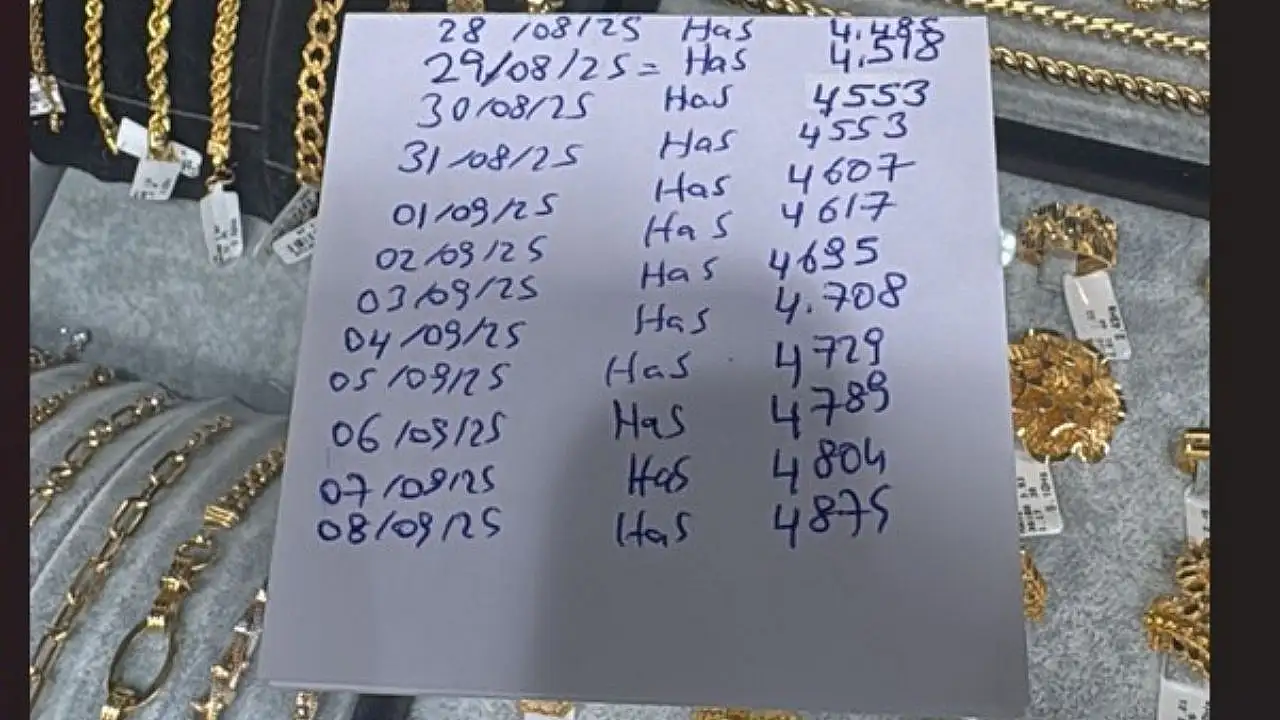 28/08/25 Has 4.495
29/08/25 = Has 4.518
30/08/25 Has 4553
31/08/25 Has 4553
01/09/25 Has 4607
02/09/25 Has 4617
03/09/25 Has 4695
04/09/25 Has 4.708
05/09/25 Has 4729
06/09/25 Has 4789
07/09/25 Has 4804
08/09/25 Has 4875